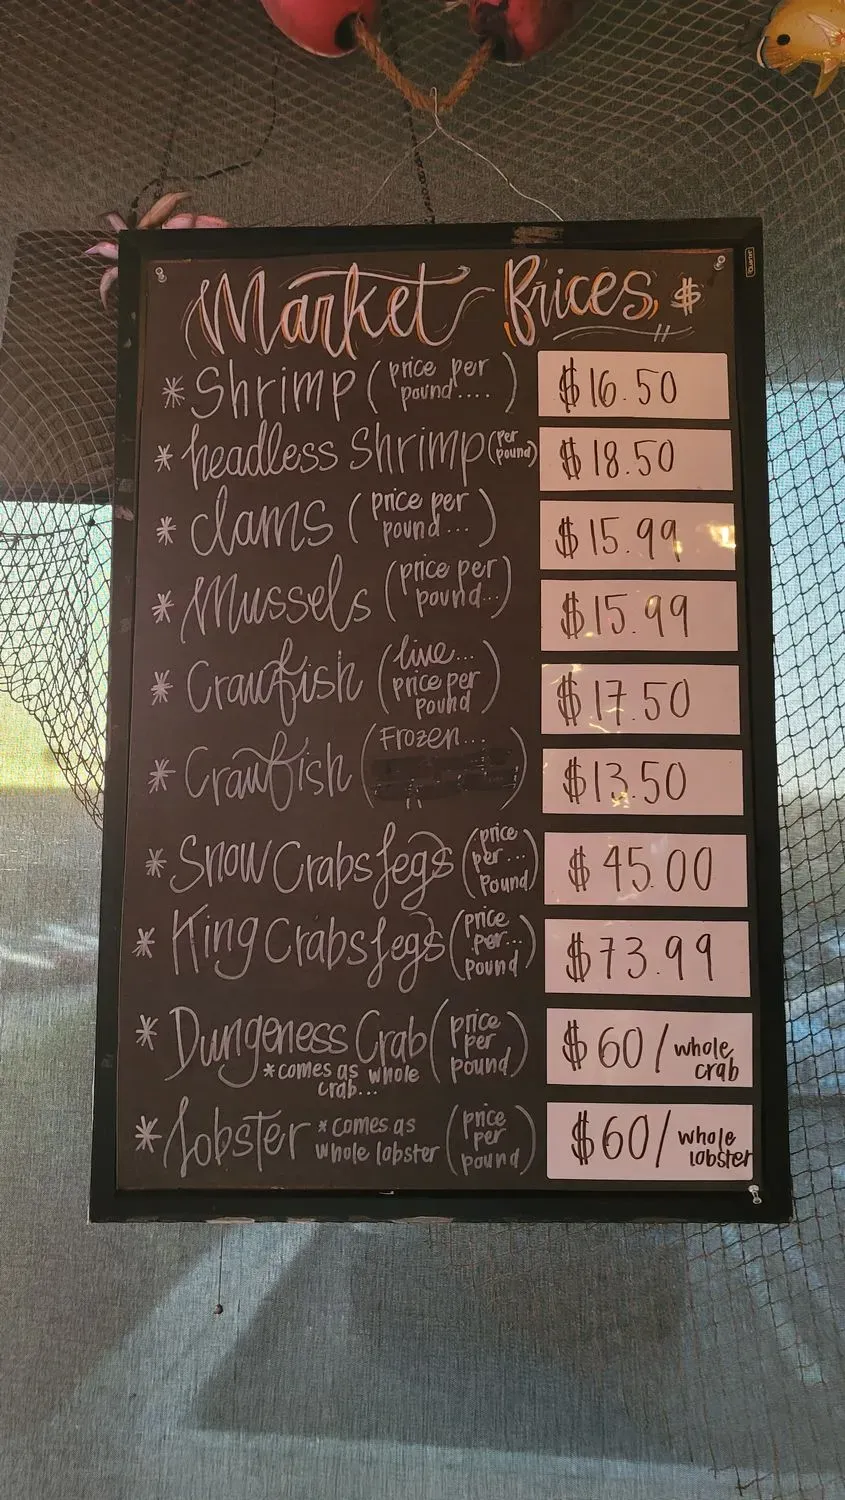 Market Prices $
* Shrimp (price per pound....) $16.50
* headless Shrimp (per pound) $18.50
* Clams (price per pound...) $15.99
* Mussels (price per pound...) $15.99
* Crawfish (live... price per pound) $17.50
* Crawfish (Frozen...) $13.50
* Snow Crabs Legs (price per... pound) $45.00
* King Crabs Legs (price per... pound) $73.99
* Dungeness Crab (price per pound) $60/whole crab
*comes as whole crab...
* Lobster *comes as whole lobster (price per pound) $60/whole lobster